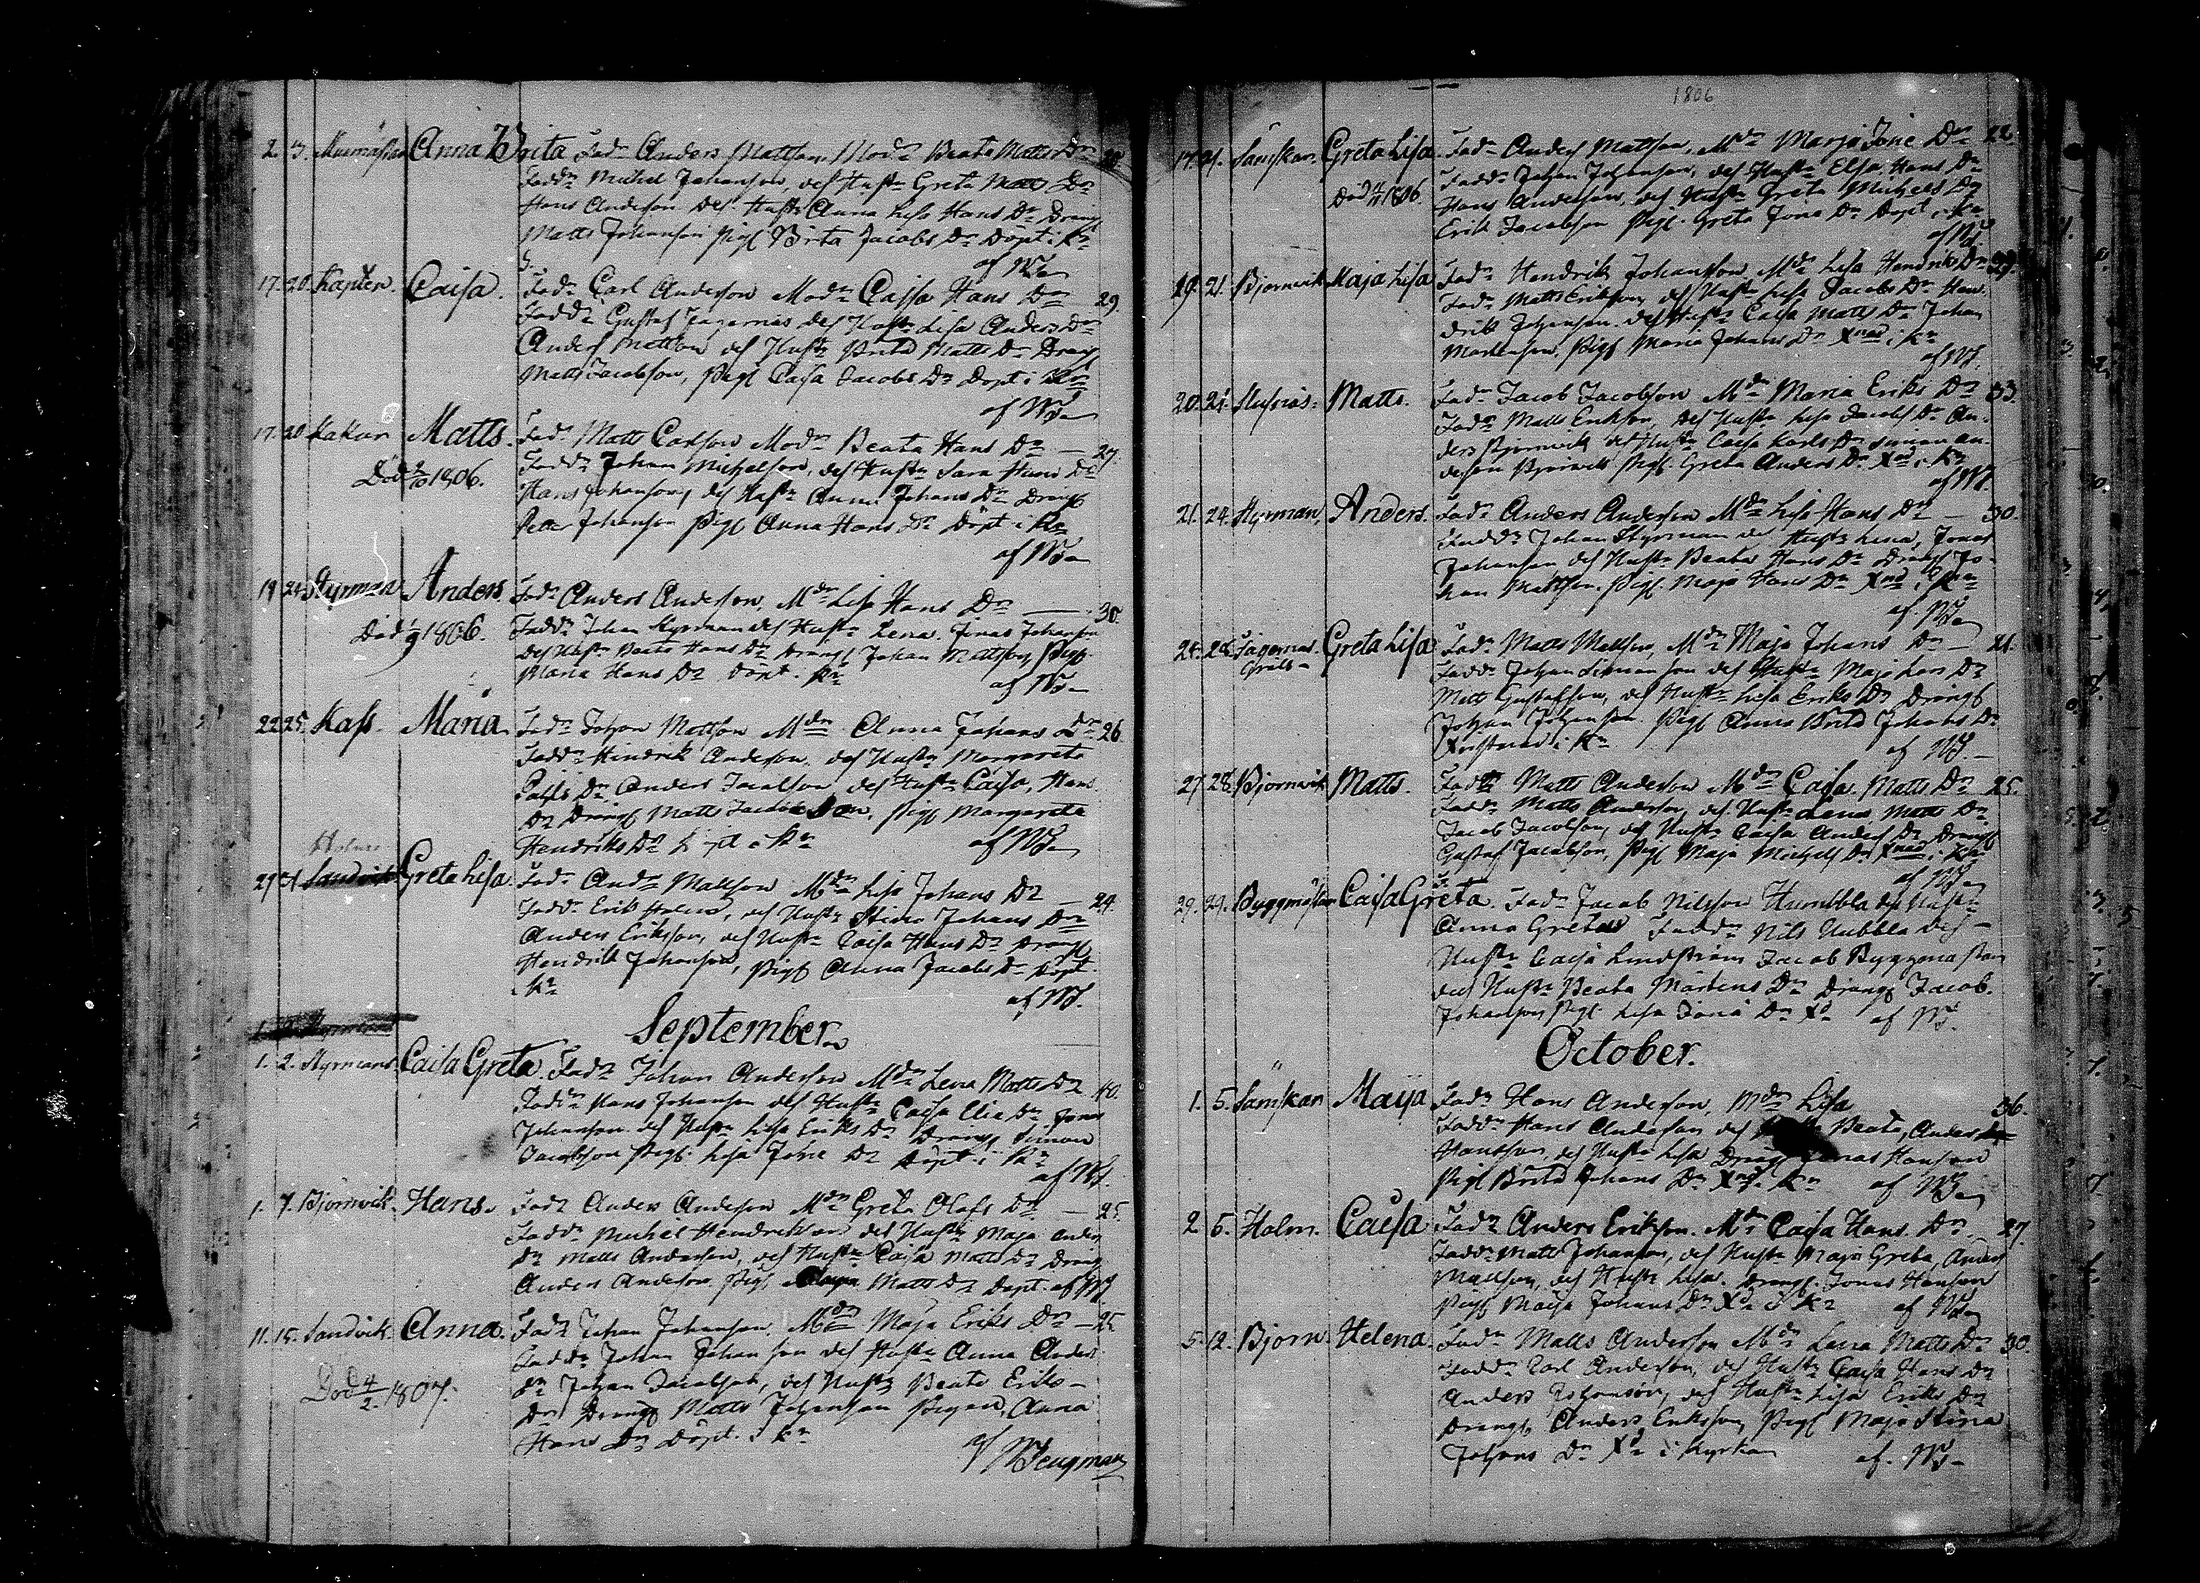 2. 3. Murmästar Anna Brita Fadr Anders Mattson, Modr Beata Matts Dr
Faddr Michel Johanson, des Hustr Greta Matts Dr
Hans Anderson des Hustr Anna Lisa Hans Dr Dräng
Matts Johanson Pig. Brita Jacobs Dr Döpt i Kr
af WT
17. 20. Caisa. Fadr Carl Anderson Modr Caisa Hans Dr 29.
Faddr Gustaf Jägernäs des Hustr Lisa Anders Dr
Anders Mattson des Hustr Brita Matts Dr Dräng
Matts Jacobson, Pig. Caisa Jacobs Dr Döpt i Kr
af WT
17. 20 Matts. Fadr Matts Carlson Modr Beata Hans Dr — 27.
Död 1806. Faddr Johan Michelson, des Hustr Sara Hans Dr
Hans Johanson, des Hustr Anna Johans Dr Dräng
Petter Johanson Pig. Anna Hans Dr Döpt i Kr
af WT
19 24 Styrman Anders. Fadr Anders Anderson, Mdr Lisa Hans Dr — 30.
Död 1806. Faddr Johan Styrman des Hustr Lena. Jonas Johanson
des Hustr Beata Hans Dr Dräng Johan Mattson, Pig.
Maria Hans Dr döpt. Kr af WT
22 25. Kass. Maria. Fadr Johan Mattson Mdr Anna Johans Dr 26
Faddr Hindrik Anderson, des Hustr Margareta
Dr Anders Jacobson des Hustr Caisa, Hans
Dr Dräng Matts Jacobson, Pig. Margareta
Hendriks Dr Döpt i Kr af WT
Holm
29 31 Sandvik Greta Lisa. Fadr Andr Mattson Mdr Lisa Johans Dr — 24.
Faddr Erik Holm, des Hustr Stina Johans Dr
Anders Erikson, des Hustr Caisa Hans Dr Dräng
Hendrik Johanson, Pig. Anna Jacobs Dr Döpt
i Kr af WT.
September.
1. 2. Styrmans. Caisa Greta. Fadr Johan Anderson Mdr Lena Matts Dr 40.
Faddr Hans Johanson des Hustr Caisa Elie Dr Jonas
Johanson des Hustr Lisa Eriks Dr Dräng Simon
Jacobson Pig. Lisa Jone Dr Döpt i Kr
af WT.
1. 7. Björnvik. Hans. Fadr Anders Anderson Mdr Greta Olofs Dr — 25.
Faddr Michel Hendrikson des Hustr Maja Anders
Dr Matts Anderson, des Hustr Caisa Matts Dr Dräng
Anders Anderson Pig. Matts Dr Döpt. af WT
11. 15. Sandvik. Anna. Fadr Johan Johanson. Mdr Maja Eriks Dr — 25.
Faddr Johan Johanson des Hustr Anna Anders
Dr Johan Jacobson, des Hustr Beata Eriks
Död 4/2 1807. Dr Dräng Matts Johanson Pigan, Anna
Hans Dr Döpt. i Kr
af WTengman
1806
17. 21. Sämskar. Greta Lisa. Fadr Anders Mattson, Mdr Marja Jone Dr 22.
Faddr Johan Johanson, des Hustr Elsa Hans Dr
Död 1806. Hans Anderson, des Hustr Greta Michels Dr
Erik Jacobson Pig. Greta Jona Dr Döpt i Kr
af WT
19. 21. Björnvik Maja Lisa Fadr Hendrik Johansson Mdr Lisa Hendriks Dr
Faddr Matts Erikson, des Hustr Lisa Jacobs Dr Hen-
drik Johanson. des Hustr Caisa Matts Dr Johan
Mårtenson, Pig. Maria Johans Dr Xnad i Kr
af WT.
20. 21. Matts. Fadr Jacob Jacobson Mdr Maria Eriks Dr 33.
Faddr Matts Erikson, des Hustr Lisa Jacobs Dr An-
ders Björnvik des Hustr Caisa Carls Dr Simon An-
derson Björnvik Pig. Greta Anders Dr Xnad i Kr
af WT.
21. 24. Styrman. Anders. Fadr Anders Anderson Mdr Lisa Hans Dr — 30.
Faddr Johan Styrman des Hustr Lena, Jonas
Johanson des Hustr Beata Hans Dr Dräng Jo-
han Mattson. Pig. Maja Hans Dr Xnad i Kr
af. WT
24. 28. Jägernäs Greta Lisa Fadr Matts Mattson, Mdr Maja Johans Dr — 21.
Faddr Johan Simonson des Hustr Maja Lars Dr
Matts Gustafsson, des Hustr Lisa Eriks Dr Dräng
Johan Johanson. Pig. Anna Brita Johans Dr
Kristnad i Kr af WT.
27. 28. Björnvik Matts. Fadr Matts Anderson Mdr Caisa Matts Dr 25.
Faddr Matts Anderson, des Hustr Lena Matts Dr
Jacob Jacobson, des Hustr Caisa Anders Dr Dräng
Gustaf Jacobson, Pig. Maja Michels Dr Xnad i Kr
af WT
29. 29. Byggmästar Caisa Greta. Fadr Jacob Nilsson Humbla des Hustr
Anna Greta Faddr Nils Hubbla des
Hustr Caisa Lindström Jacob Byggmästar
des Hustr Beata Mårtens Dr Dräng Jacob
Johanson Pig. Lisa Jona Dr Xd af WT.
October.
1. 5. Sämskar Maija Fadr Hans Anderson, Mdr Lisa 36.
Faddr Hans Anderson des Beata, Anders
Hansson, des Hustr Lisa Dräng Jonas Hanson
Pig. Brita Johans Dr Xnd i Kr af WT
2 6. Holm. Caisa Fadr Anders Erikson. Mdr Caisa Hans Dr. 27.
Faddr Matts Johanson, des Hustr Maja Greta, Anders
Mattson, des Hustr Lisa. Dräng. Jonas Hanson
Pig. Maija Johans Dr Xd i Kr af WT
5. 12. Björn. Helena. Fadr Matts Anderson Mdr Lena Matts Dr 30.
Faddr Carl Anderson, des Hustr Caisa Hans Dr
Anders Johanson, des Hustr Lisa Eriks Dr
Dräng, Anders Erikson Pig. Maja Stina
Johans Dr Xd i Kyrkan af. WT